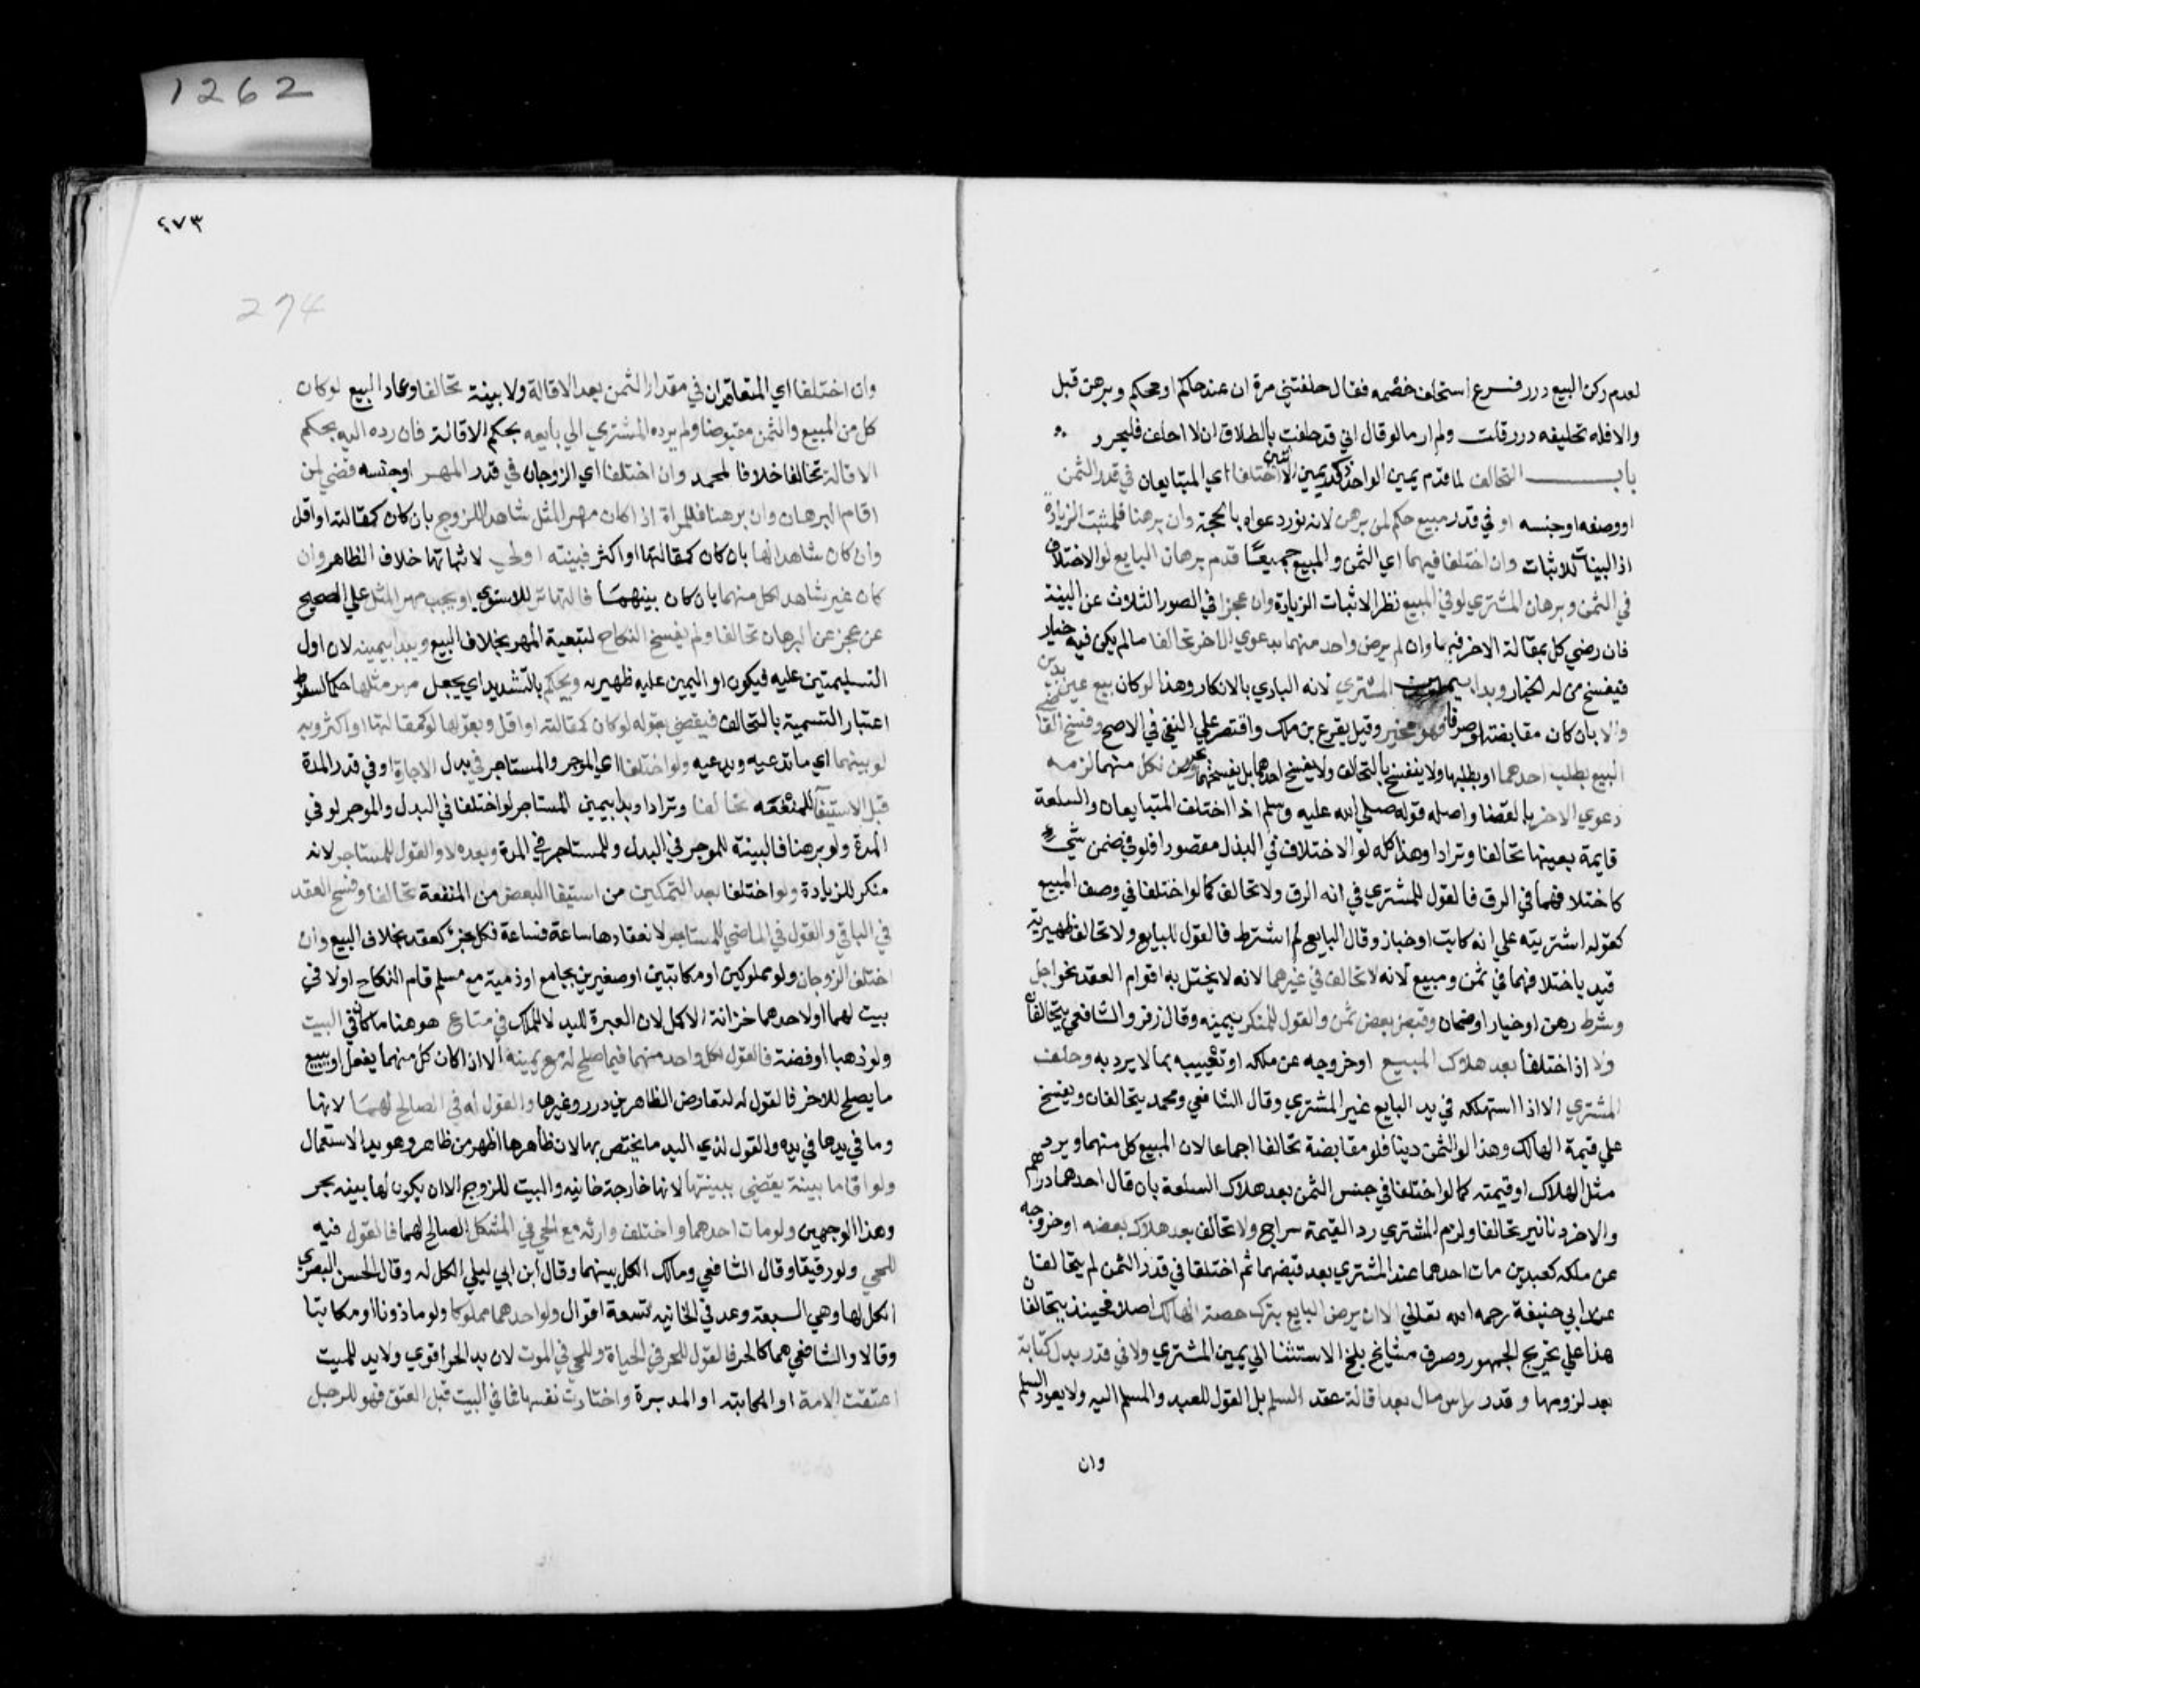 1262
لعدم ركن البيع درر فرع استحلف خصمه فقال حلفتني مرة ان عند حاكم او محكم وبرهن قبل
والا فله تحليفه درر قلت ولم ار ما لو قال اني قد حلفت بالطلاق ان لا احلف فليحرر
باب التحالف لما قدم يمين الواحد ذكر يمين الاثنين اختلفا اي المتبايعان في قدر الثمن
او وصفه او جنسه او في قدر مبيع حكم لمن برهن لانه نور دعواه بالحجة وان برهنا فلمثبت الزيادة
اذ البينات للاثبات وان اختلفا فيهما اي الثمن والمبيع جميعا قدم برهان البايع لو الاختلاف
في الثمن وبرهان المشتري لو في المبيع نظرا لاثبات الزيادة وان عجزا في الصور الثلاث عن البينة
فان رضي كل بمقالة الاخر فبها وان لم يرض واحد منهما بدعوي الاخر تحالفا ما لم يكن فيه خيار
فيفسخ من له الخيار وبدا بيمين المشتري لانه البادي بالانكار وهذا لو كان بيع عين بدين
والا بان كان مقايضة او صرفا فهو مخير وقيل يقرع بن ملك واقتصر علي النفي في الاصح وفسخ القاضي
البيع بطلب احدهما او بطلبهما ولا ينفسخ بالتحالف ولا بفسخ احدهما بل بفسخهما بحر ومن نكل منهما لزمه
دعوي الاخر بالقضا واصله قوله صلي الله عليه وسلم اذا اختلف المتبايعان والسلعة
قايمة بعينها تحالفا وترادا وهذا كله لو الاختلاف في البدل مقصودا فلو في ضمن شي
كاختلافهما في الزق فالقول للمشتري في انه الزق ولا تحالف كما لو اختلفا في وصف المبيع
كقوله اشتريته علي انه كاتب او خباز وقال البايع لم اشترط فالقول للبايع ولا تحالف ظهيرية
قيد باختلافهما في ثمن ومبيع لانه لا تحالف في غيرهما لانه لا يختل به قوام العقد نحو اجل
وشرط رهن او خيار او ضمان وقبض بعض ثمن والقول للمنكر بيمينه وقال زفر والشافعي يتحالفان
ولا اذا اختلفا بعد هلاك المبيع او خروجه عن ملكه او تعييبه بما لا يرد به وحلف
المشتري الا اذا استهلكه في يد البايع غير المشتري وقال الشافعي ومحمد يتحالفان ويفسخ
علي قيمة الهالك وهذا لو الثمن دينا فلو مقايضة تحالفا اجماعا لان المبيع كل منهما ويرد
مثل الهلاك او قيمته كما لو اختلفا في جنس الثمن بعد هلاك السلعة بان قال احدهما دراهم
والاخر دنانير تحالفا ولزم المشتري رد القيمة سراج ولا تحالف بعد هلاك بعضه او خروجه
عن ملكه كعبدين مات احدهما عند المشتري بعد قبضهما ثم اختلفا في قدر الثمن لم يتحالفا
عند ابي حنيفة رحمه الله تعالي الا ان يرضي البايع بترك حصة الهالك اصلا فحينذ يتحالفان
هذا علي تخريج الجمهور وصرف مشايخ بلخ الاستثنا الي يمين المشتري ولا في قدر بدل كتابة
بعد لزومها و قدر راس مال بعد اقالة عقد السلم بل القول للعبد والمسلم اليه ولا يعود السلم
وان
٤٧٣
274
وان اختلفا اي المتعاقدان في مقدار الثمن بعد الاقالة ولا بينة تحالفا وعاد البيع لو كان
كل من المبيع والثمن مقبوضا ولم يرده المشتري الي بايعه بحكم الاقالة فان رده اليه بحكم
الاقالة تحالفا خلافا لمحمد وان اختلفا اي الزوجان في قدر المهر او جنسه قضي لمن
اقام البرهان وان برهنا فللمراة اذا كان مهر المثل شاهدا للزوج بان كان كمقالته او اقل
وان كان شاهدا لها بان كان كمقالتها او اكثر فبينته اولي لاثباتها خلاف الظاهر وان
كان غير شاهد لكل منهما بان كان بينهما فالتهاتر للاستوي ويجب مهر المثل علي الصحيح
عن عجز عن البرهان تحالفا ولم يفسخ النكاح لتبعية المهر بخلاف البيع ويبدا بيمينه لان اول
التسليمتين عليه فيكون او اليمين عليه ظهيريه ويحكم بالتشديد اي يجعل مهر مثلها حكما لسقوط
اعتبار التسمية بالتحالف فيقضي بقوله لو كان كمقالته او اقل وبقولها لو كمقالتها او اكثر وبه
لو بينهما اي ما تدعيه ويدعيه ولو اختلفا اي الموجر والمستاجر في بدل الاجارة او في قدر المدة
قبل الاستيفا للمنفعه تحالفا وترادا وبدا بيمين المستاجر لو اختلفا في البدل والموجر لو في
المدة ولو برهنا فالبينة للموجر في البدل وللمستاجر في المدة وبعده لا والقول للمستاجر لانه
منكر للزيادة ولو اختلفا بعد التمكين من استيفا البعض من المنفعة تحالفا وفسخ العقد
في الباقي والقول في الماضي للمستاجر لانعقادها ساعة فساعة فكل جزء كعقد بخلاف البيع وان
اختلف الزوجان ولو مملوكين او مكاتبين او صغيرين يجامع او ذمية مع مسلم قام النكاح او لا في
بيت لهما او لاحدهما خزانة الاكمل لان العبرة لليد لا للملك في متاع هو هنا ما كان في البيت
ولو ذهبا او فضة فالقول لكل واحد منهما فيما صلح له مع يمينه الا اذا كان كل منهما يفعل او يبيع
ما يصلح للاخر فالقول له لتعارض الظاهرين درر وغيرها والقول له في الصالح لهما لانها
وما في يدها في يده والقول لذي اليد ما يختص بها لان ظاهرها اظهر من ظاهره وهو يد الاستعمال
ولو اقاما بينة يقضي ببينتها لانها خارجة خانيه والبيت للزوج الا ان يكون لها بينه بحر
وهذا الوجهين ولو مات احدهما واختلف وارثه مع الحي في المشكل الصالح لهما فالقول فيه
للحي ولو رقيقا وقال الشافعي ومالك الكل بينهما وقال ابن ابي ليلي الكل له وقال الحسن البصري
الكل لها وهي السبعة وعد في الخانيه تسعة اقوال ولو احدهما مملوكا ولو ماذونا او مكاتبا
وقالا والشافعي هما كالحر فالقول للحر في الحياة وللحي في الموت لان يد الحر اقوي ولا يد للميت
اعتقت الامة او المكاتبه او المدبرة واختارت نفسها فما في البيت قبل العتق فهو للرجل